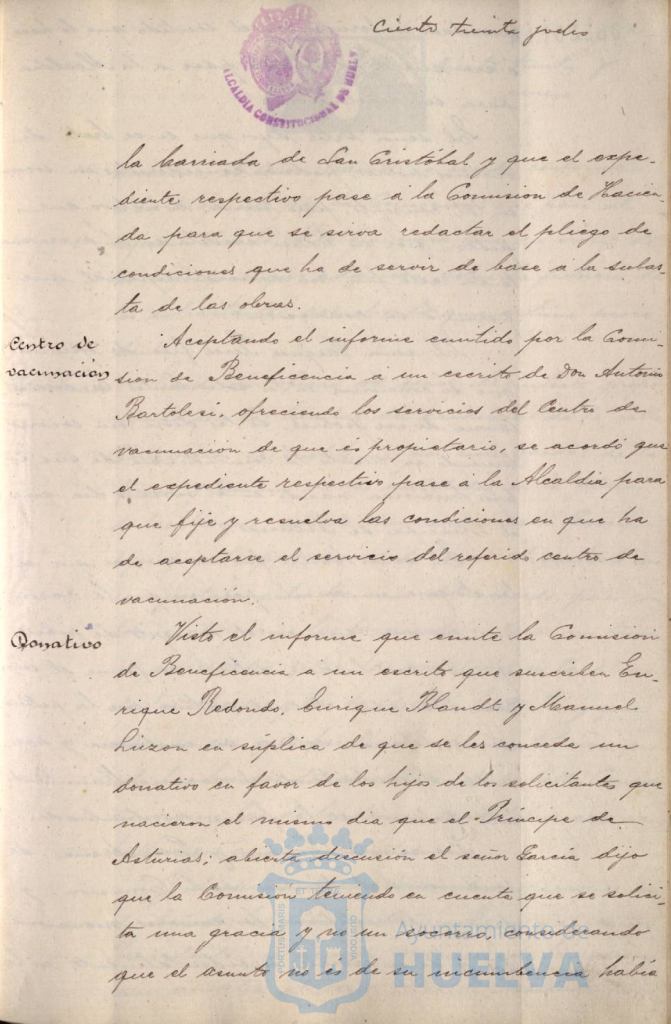 Ciento treinta y dos
ALCALDIA CONSTITUCIONAL DE HUELVA
la barriada de San Cristóbal y que el expe-
diente respectivo pase á la Comision de Hacien-
da para que se sirva redactar el pliego de
condiciones que ha de servir de base á la subas-
ta de las obras.
Centro de
vacunación
Aceptando el informe emitido por la Comi-
sion de Beneficencia á un escrito de Don Antonio
Bartolesi, ofreciendo los servicios del Centro de
vacunación de que és propietario, se acordó que
el expediente respectivo pase á la Alcaldia para
que fije y resuelva las condiciones en que ha
de aceptarse el servicio del referido centro de
vacunación.
Donativo
Visto el informe que emite la Comision
de Beneficencia á un escrito que suscriben En-
rique Redondo, Enrique Blandt y Manuel
en súplica de que se les conceda un
donativo en favor de los hijos de los solicitantes que
nacieron el mismo dia que el Príncipe de
Asturias; abierta discusión el señor García dijo
que la Comision teniendo en cuenta que se solici-
ta una gracia y no un socorro, considerando
que el asunto no és de su incumbencia había
Ayuntamiento de
HUELVA